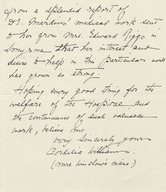 from a splendid report of
Dr. medical work sent
to her from Mrs. Edward Riggs in
Smyrna that her interest and
desire to help in this particular work
has grown so strong.
Hoping every good thing for the
welfare of the Hospice and
the continuance of such valuable
work, believe me
Very sincerely yours
Cordelia Williams
(Mrs.